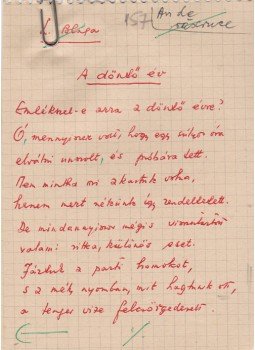 L. Blaga
157
A döntő év
Emlékszel-e arra a döntő évre?
Ó, mennyiszer volt, hogy egy súlyos óra
elválni unszolt, és prédára tett.
Nem mintha mi akartuk volna,
hanem mert nékünk így rendeltetett.
De mindannyiszor mégis visszatartott
valami: ritka, különös eset.
Jártuk a parti homokot,
s a mély nyomban, mit hagytunk ott,
a tenger vize felcsörgedezett.